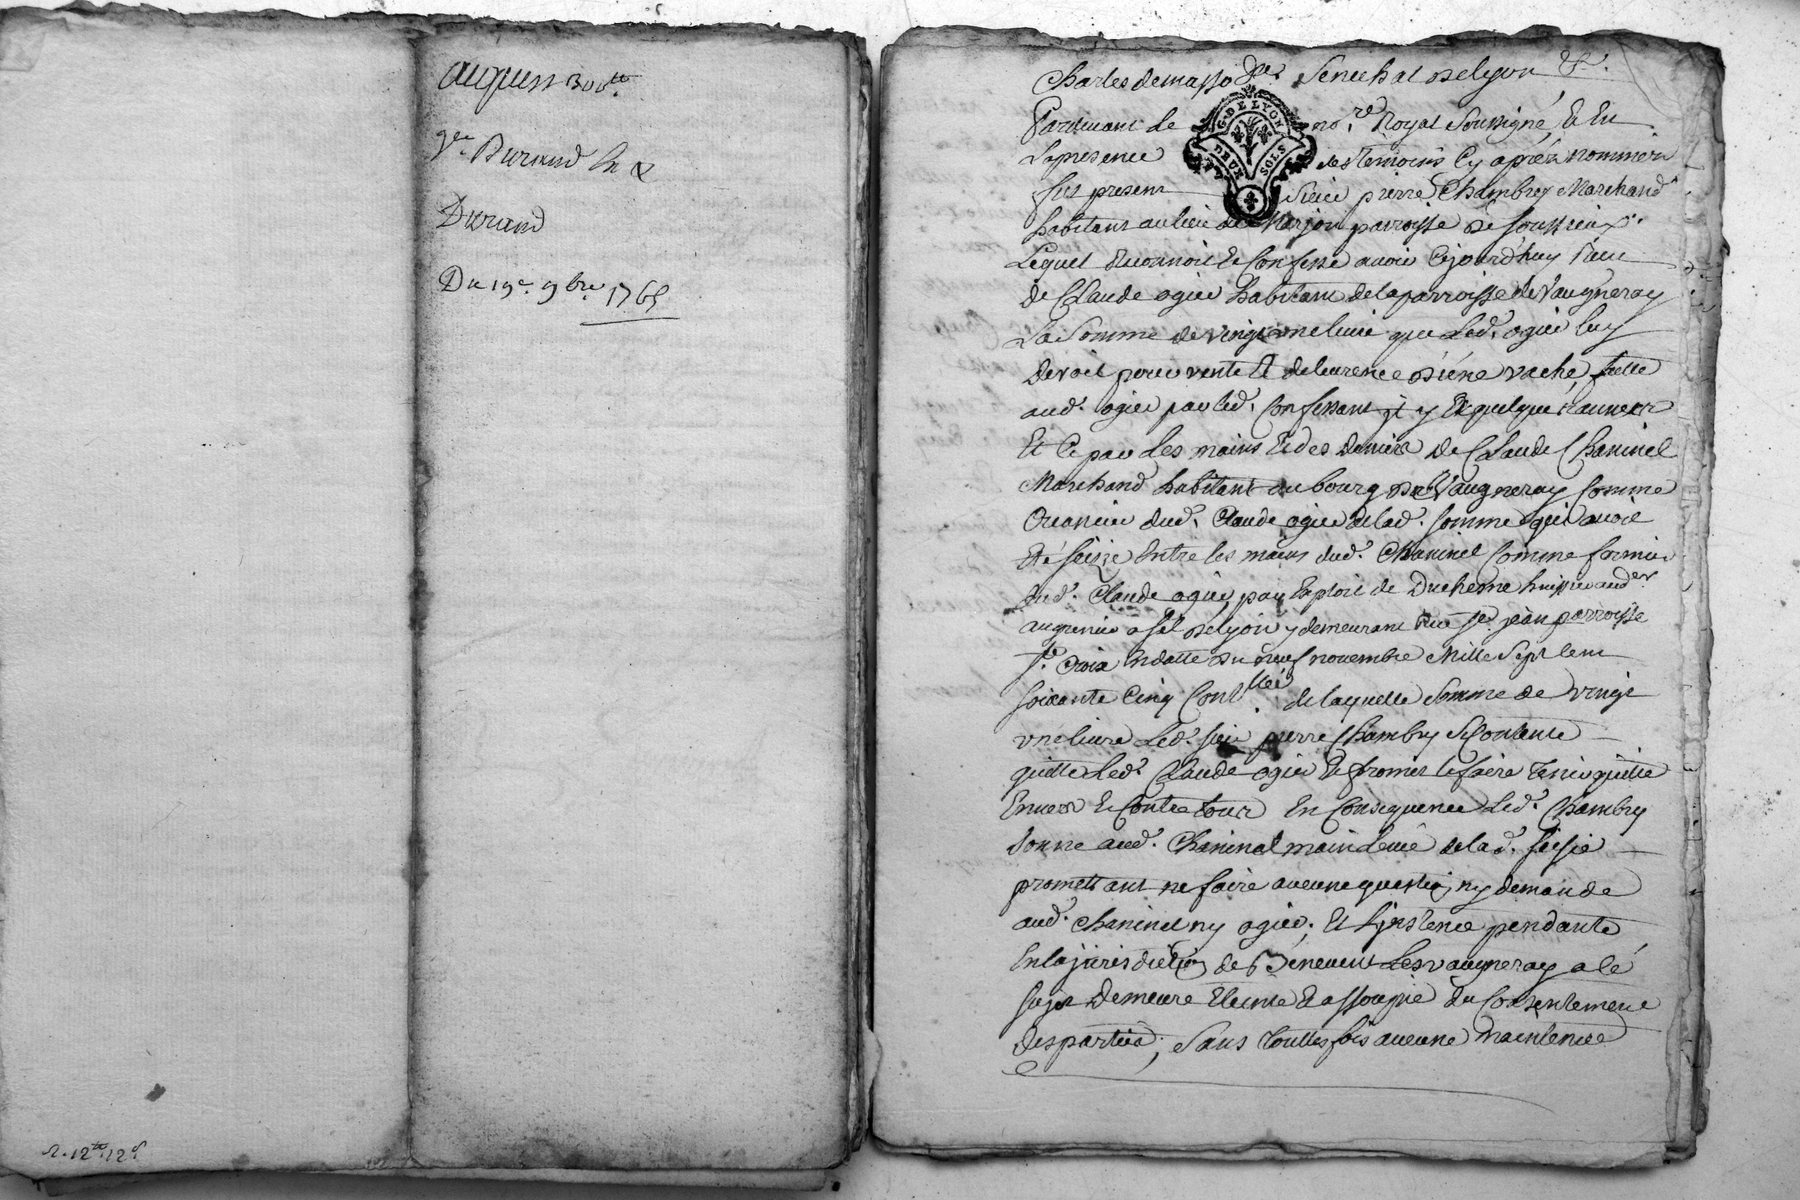 300ᵗᵗ
Durand
Durand
Du 19ᵉ 9bre 1765
R. 12ᵗᵗ 12ˢ
Charles demasso Senechal delyon &c.
Pardevant le noʳᵉ Royal Soussigné, Et En
Lapresence des Temoins Cy aprés nommés
fut present Sieur pierre Chambry Marchand
habitant au lieu de parroisse de Soussieux
Lequel reconnoit Et Confesse avoir Cejourd'huy Reçu
de Claude ogier habitant delaparroisse de Vaugneray
La Somme de vingt une livre que Led. ogier luy
devoit pour vente Et delivrence d'une vache, faitte
aud. ogier par led. Confessant il y a quelques années
Et Ce par Les mains Et des deniers de Claude Chaninel
Marchand habitant au bourg de Vaugneray Comme
dud. Claude ogier delad. Somme qui avoit
Eté Seizie Entre les mains dud. Chaninel Comme fermier
dud. Claude ogier, par Exploit de Duchesne huissier aud.er
augrenier a Sel delyon y demeurant Rue St jean parroisse
Ste Croix En datte du neuf novembre Mille Sept Cent
Soixante Cinq Conllé. de laquelle Somme de vingt
une livre Led. Sieur pierre Chambry Se Contente
quitte Led. Claude ogier Et promet le faire Tenir quitte
Envers Et Contre tous En Consequence Led. Chambry
donne aud. Chaninel mainlevée delad. Saisie
promettant ne faire aucune question ny demande
aud. Chaninel ny ogier, Et L'instence pendante
En la jurisdiction de Benevent Les vaugneray a Ce
Sujet Demeure Eteinte Et assoupie du Consentement
Desparties, Sans Touttes fois aucune maintenue
G. DE LYON
DEUX SOLS